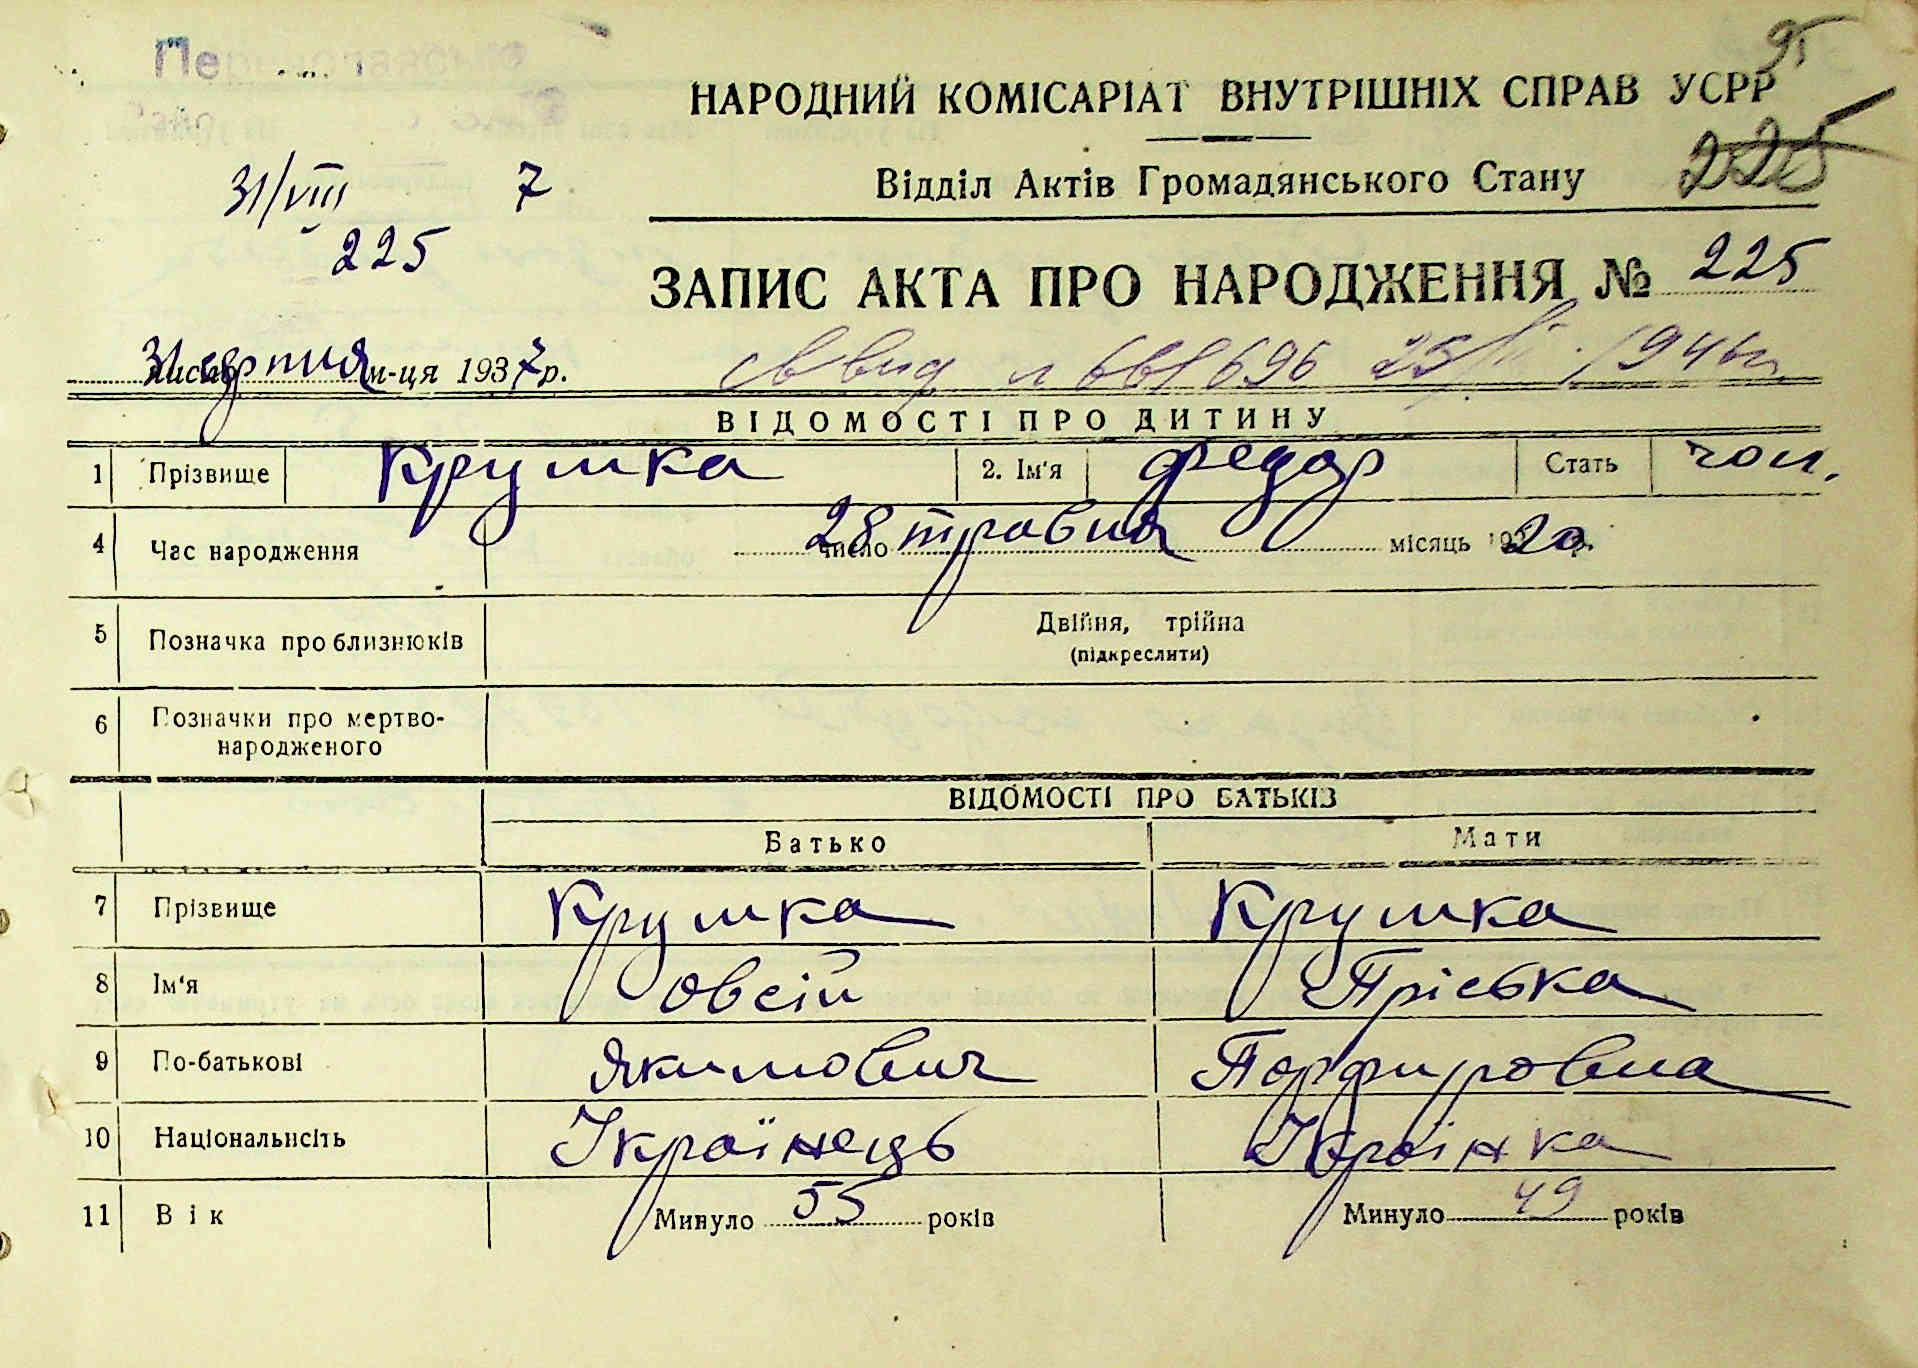 95
НАРОДНИЙ КОМІСАРІАТ ВНУТРІШНІХ СПРАВ УСРР
225
31/VIII 7
Відділ Актів Громадянського Стану
225
ЗАПИС АКТА ПРО НАРОДЖЕННЯ № 225
31 серпня м-ця 1937 р.
ВІДОМОСТІ ПРО ДИТИНУ
1 Прізвище Крушка 2. Ім'я Федор Стать чол.
4 Час народження 28 число травня місяць 1920 р.
5 Позначка про близнюків Двійня, трійна
(підкреслити)
6 Позначки про мертво-
народженого
ВІДОМОСТІ ПРО БАТЬКІВ
Батько Мати
7 Прізвище Крушка Крушка
8 Ім'я Овсій Пріська
9 По-батькові Якимович Порфировна
10 Національнсіть Українець Українка
11 Вік Минуло 55 років Минуло 49 років